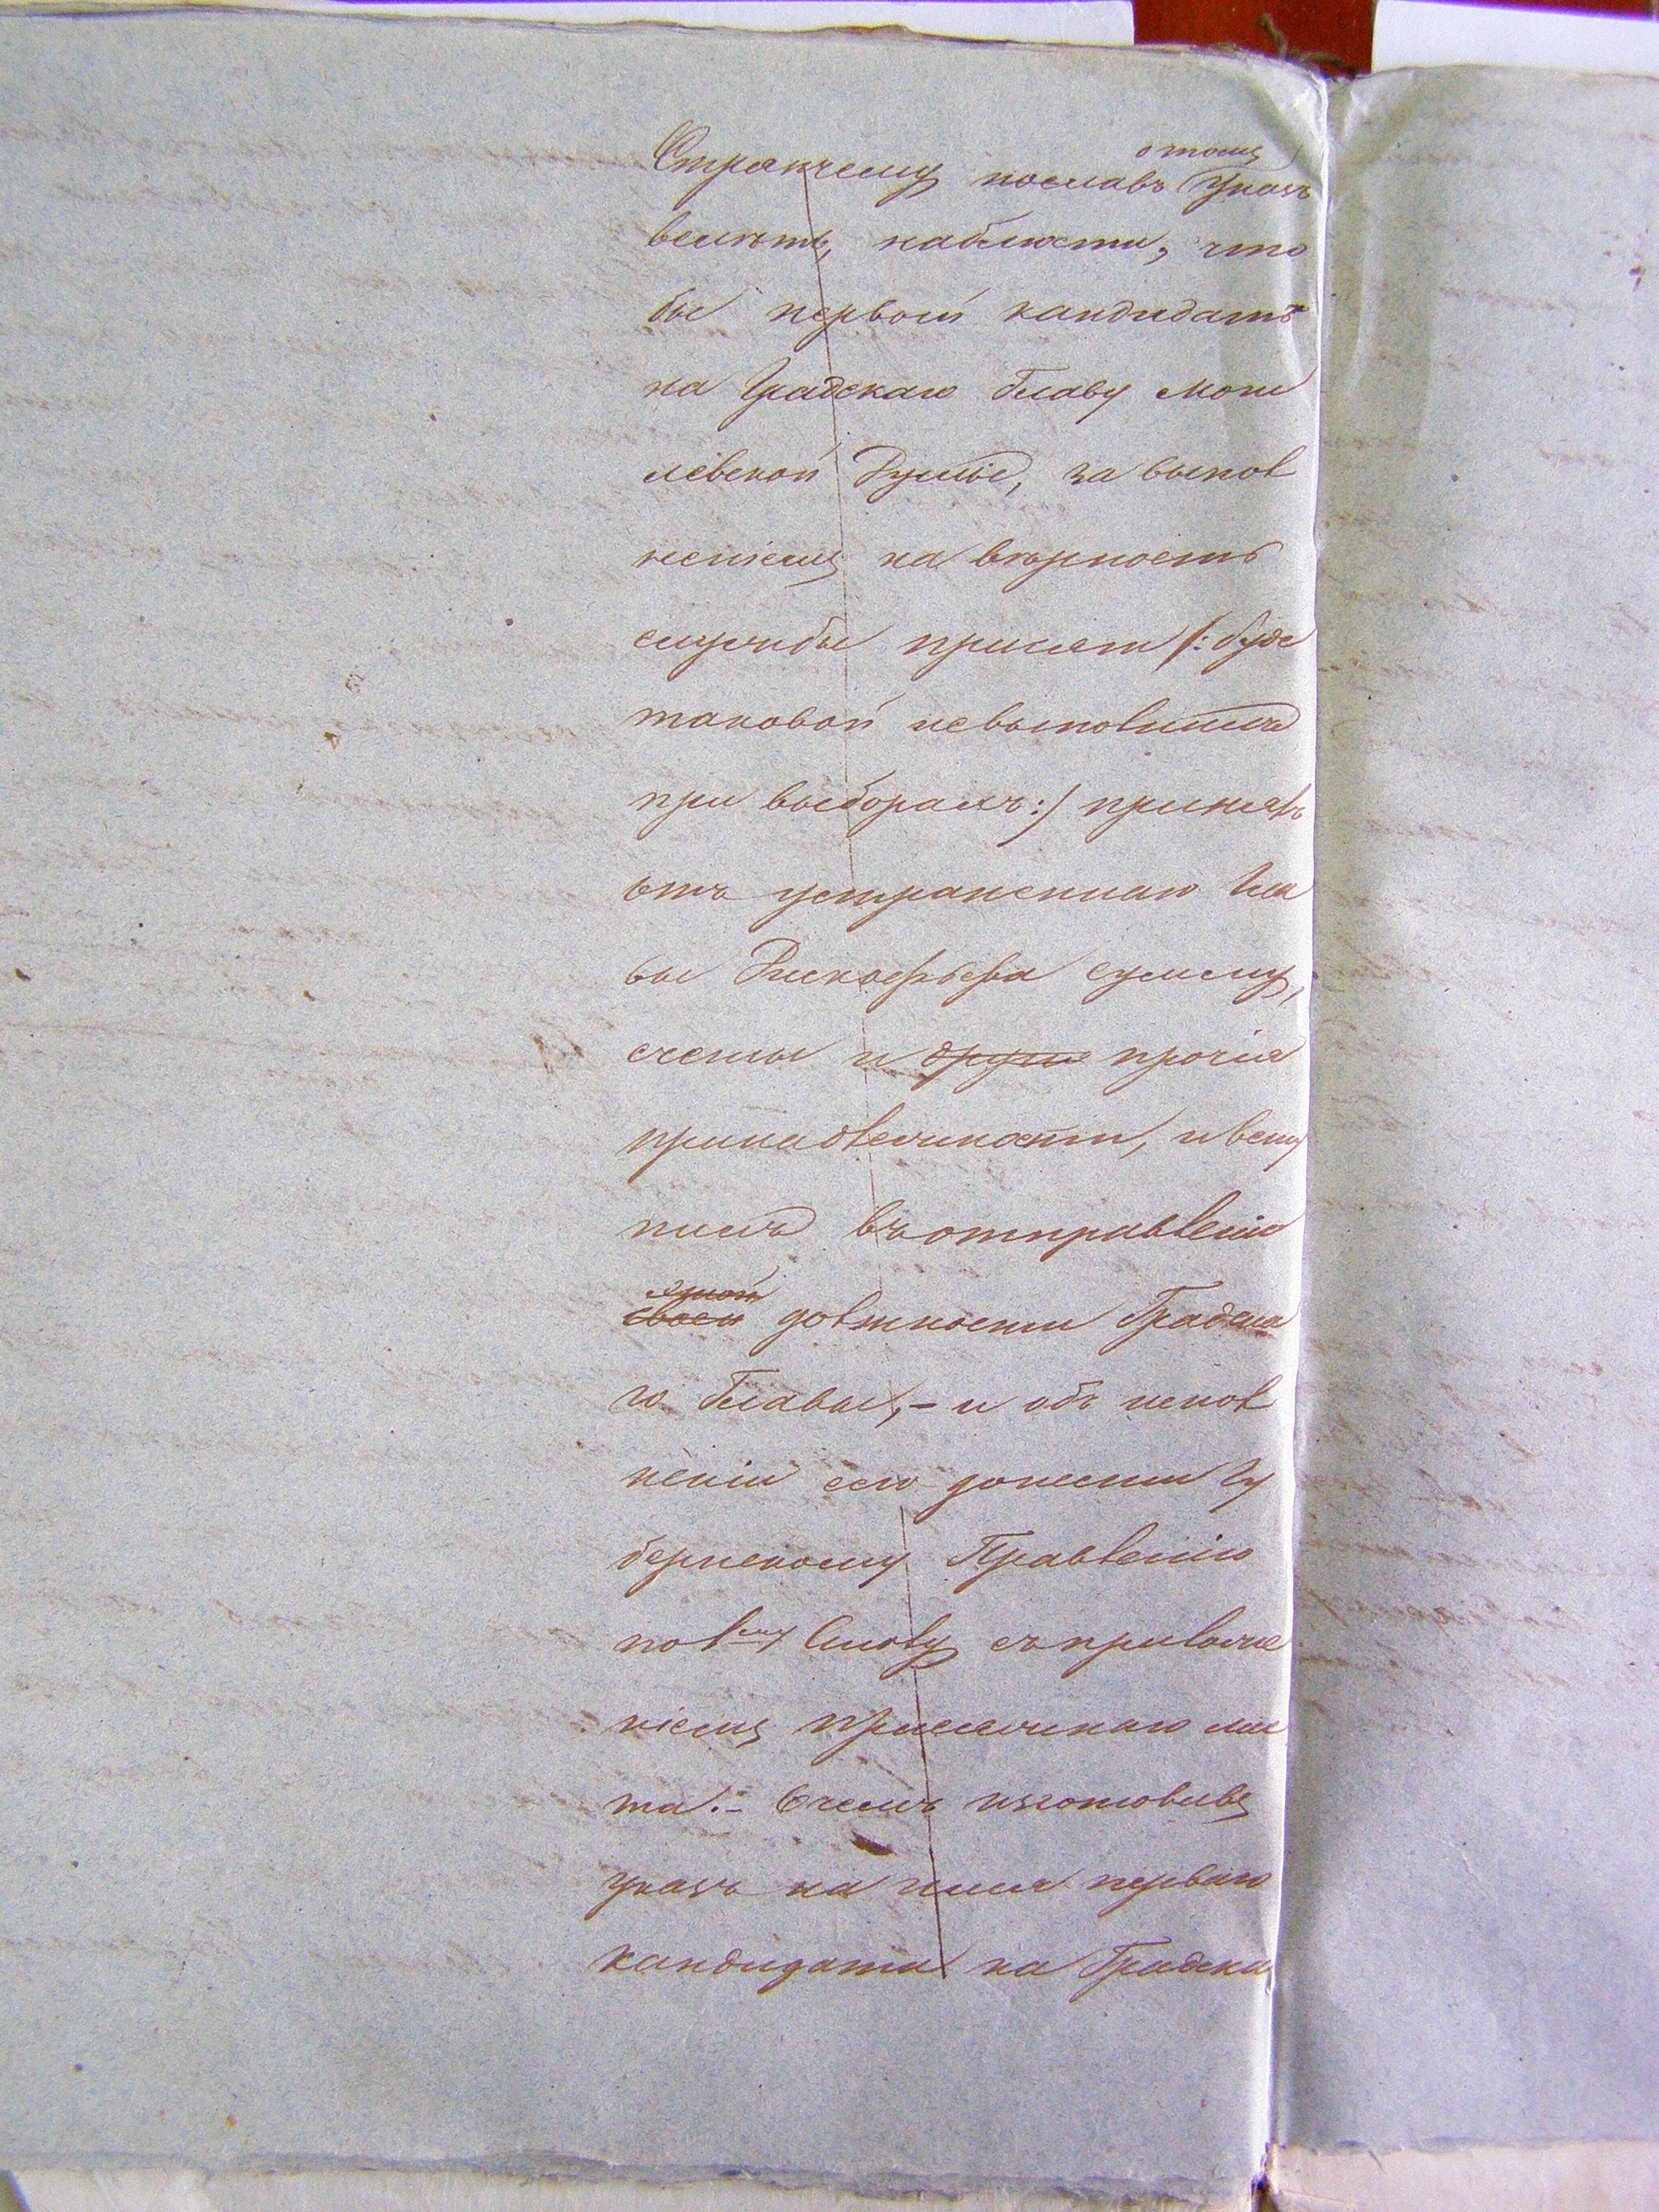 о томъ
Стряпчему пославъ Указъ
велѣть, наблюсти, что
бы первой кандидатъ
на Градскаго Главу Моги
левской Думы, за выпол
неніемъ на вѣрность
службы присяги /: буде
таковой невыполнилъ
при выборахъ :/ принялъ
отъ устраненнаго Гла
вы сумму,
счеты и други прочія
принадлежности, и всту
пилъ въ отправленіе
своей должности Градска
го Главы, – и объ испол
неніи сего донести Гу
бернскому Правленію
по 1му Столу съ приложе
ніемъ присяжнаго лис
та. – О чемъ изготовивъ
указъ на имя перваго
кандидата на Градска